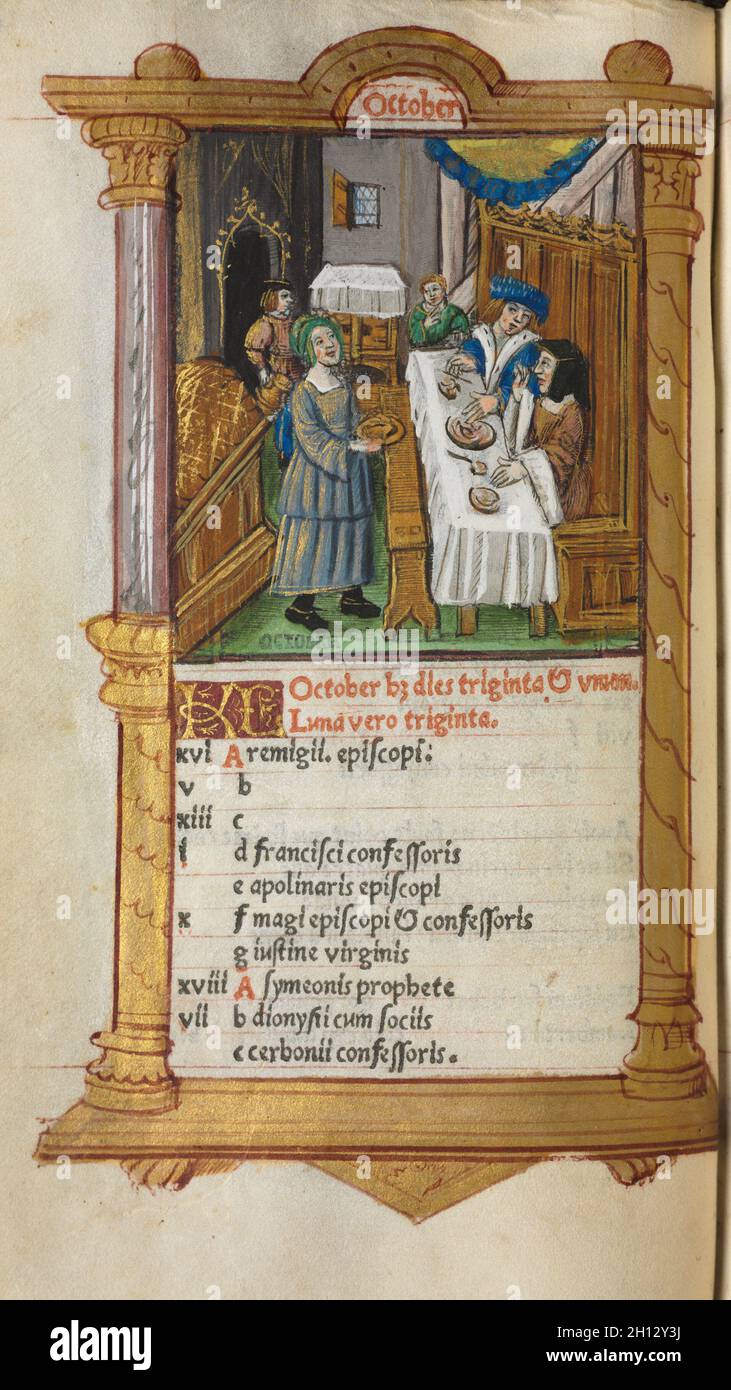 October
OCTOB
KL October hȝ dies triginta & vnum.
Luna vero triginta.
xvi A remigii. epiſcopi:
v b
xiii c
i d franciſci confeſſoris
e apolinaris epiſcopi
x f magi epiſcopi & confeſſoris
g iuſtine virginis
xviii A ſymeonis prophete
vii b dionyſii cum ſociis
c cerbonii confeſſoris.
a
alamy
Image ID: 2H12Y3J
www.alamy.com